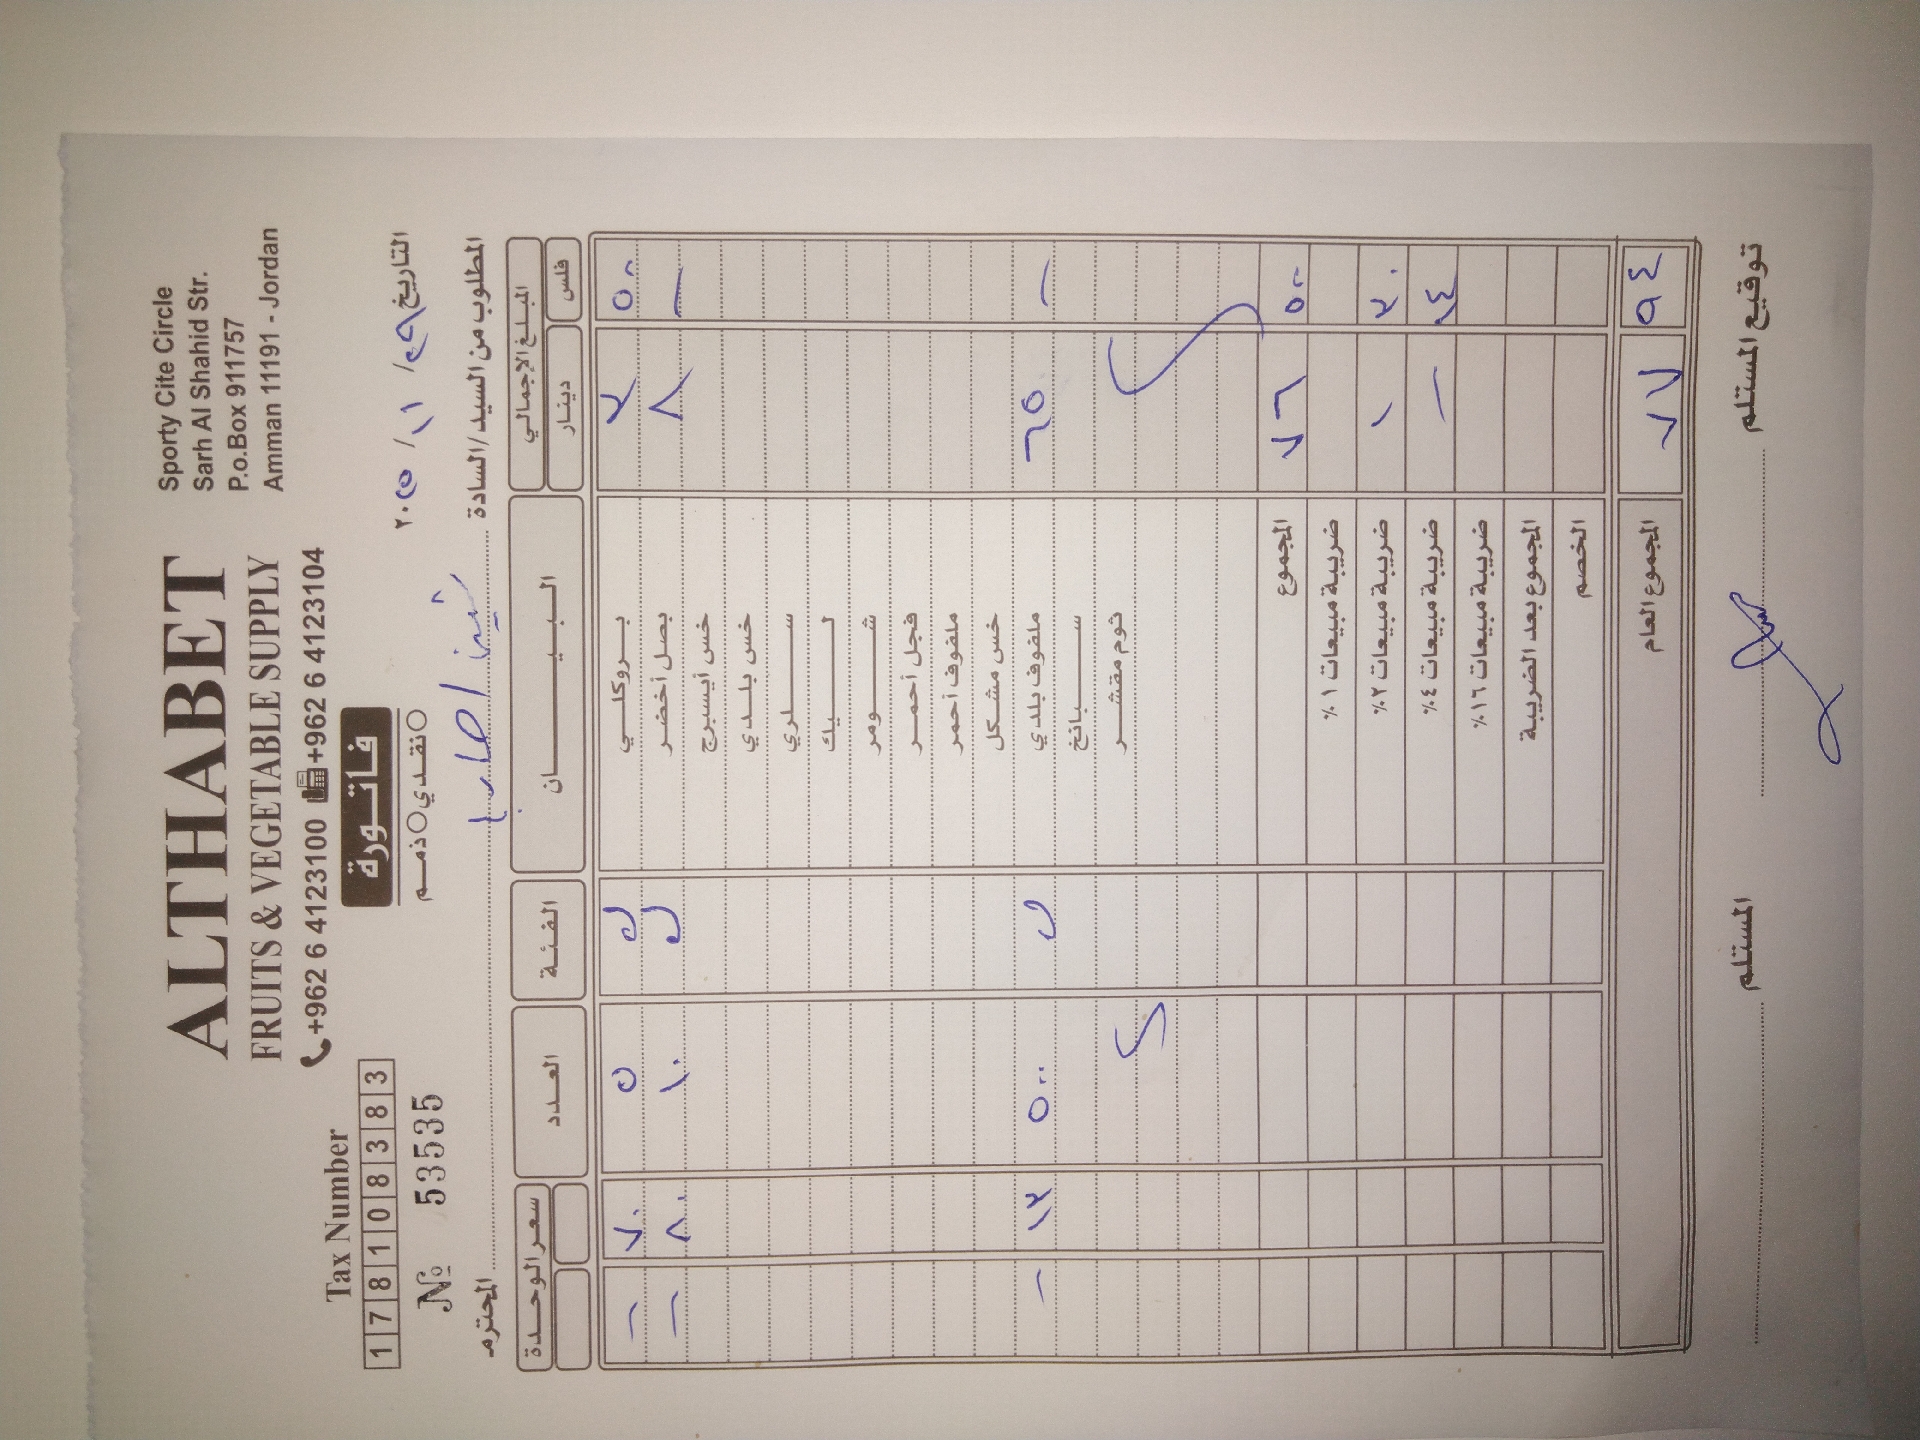 ALTHABET
FRUITS & VEGETABLE SUPPLY
+962 6 4123100 +962 6 4123104
Sporty Cite Circle
Sarh Al Shahid Str.
P.o.Box 911757
Amman 11191 - Jordan
Tax Number
1 7 8 1 0 8 3 8 3
№ 53535
فاتورة
نقدي ذمم
التاريخ ٢٩ / ١١ / ٢٠٢٥
المطلوب من السيد/السادة المحترم
المبلغ الإجمالي البيــــــان الفئة العدد سعر الوحدة
فلس دينار
٥٠ ٣ بروكلي ك ٥ ٧٠ -
- ٨ بصل أخضر ك ١٠ ٨٠ -
خس أيسبرج
خس بلدي
سلري
ليك
شومر
فجل أحمر
ملفوف أحمر
خس مشكل
- ٦٥ ملفوف بلدي ك ٥٠٠ ١٣ -
سبانخ
ثوم مقشر
٥٠ ٧٦ المجموع
ضريبة مبيعات ١٪
٣٠ ١ ضريبة مبيعات ٢٪
١٤ - ضريبة مبيعات ٤٪
ضريبة مبيعات ١٦٪
المجموع بعد الضريبة
الخصم
٩٤ ٧٧ المجموع العام
توقيع المستلم المستلم